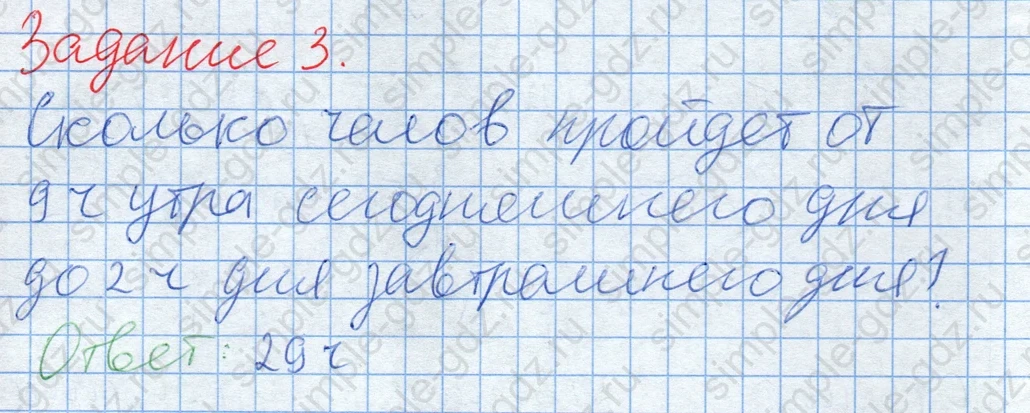 Задание 3.
Сколько часов пройдет от
9 ч утра сегоднешнего дня
до 2 ч дня завтрашнего дня?
Ответ: 29 ч